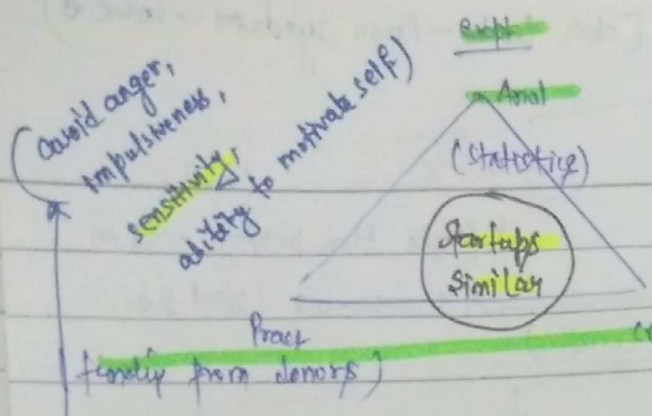 (avoid anger,
impulsiveness,
sensitivity,
ability to motivate self)
Anal
(Statistics)
Startups
Similar
Pract
from donors)